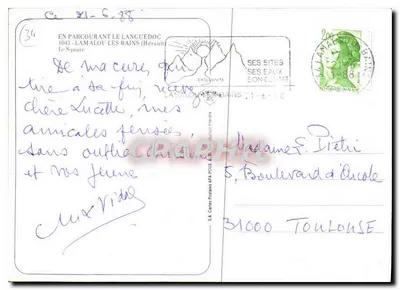 34
Ce 21-6-88
EN PARCOURANT LE LANGUEDOC
1043 - LAMALOU LES BAINS (Hérault)
Le Square
De ma cure, qui
tire à sa fin, recevez
chère Lucette, mes
amicales pensées,
sans oublier
et vos jeunes
SES SITES
SES EAUX
SON CLIMAT
Madame L. Pietri
5, Boulevard d'Arcole
31000 TOULOUSE